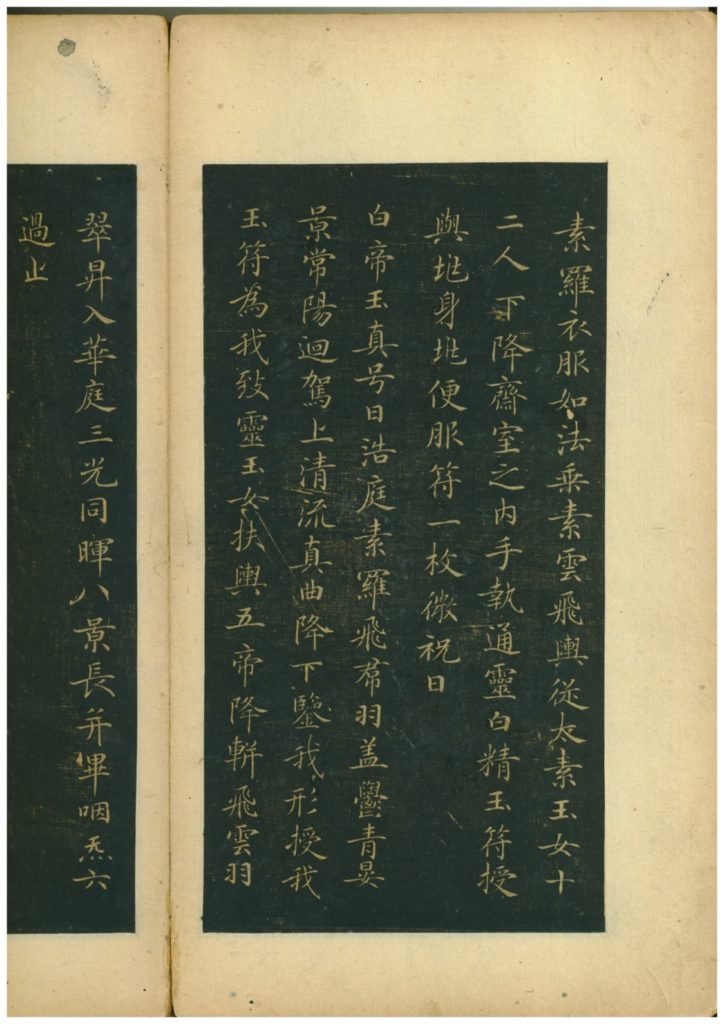 素羅衣服如法乗素雲飛輿從太素玉女十
二人下降齋室之内手執通靈白精玉符授
與兆身兆便服符一枚微祝曰
白帝玉真号曰浩庭素羅飛帬羽盖鬱青晏
景常陽迴駕上清流真曲降下鑒我形授我
玉符為我致靈玉女扶輿五帝降軿飛雲羽
翠昇入華庭三光同暉八景長并畢咽炁六
過止